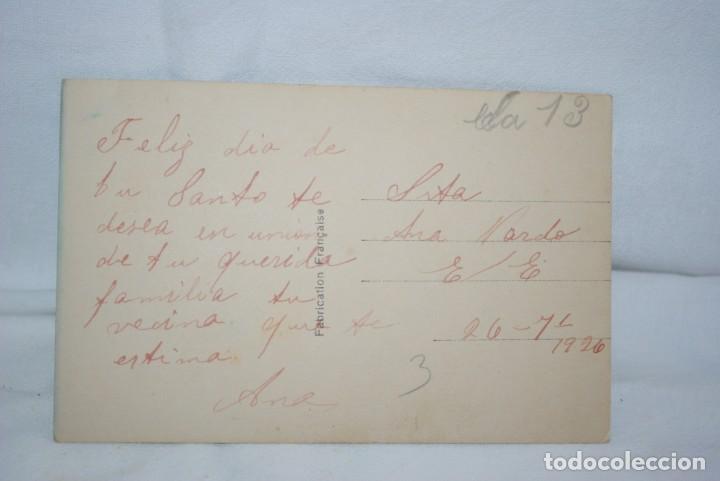 13
Feliz dia de
tu Santo te
desea en union
de tu querida
familia tu
vecina que te
estima
Ana
Fabrication Française
Srta
Ana Pardo
E/E
26-7
1926
3
todocoleccion.net